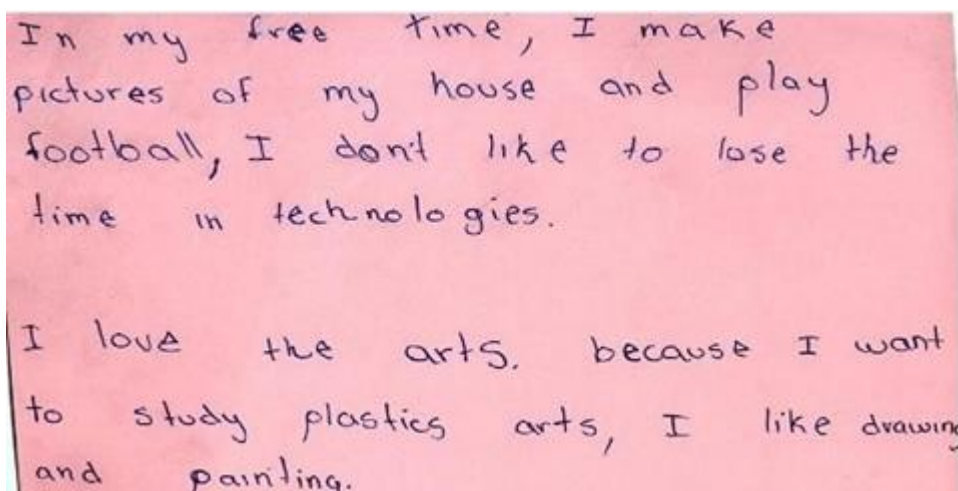 In my free time, I make
pictures of my house and play
football, I don't like to lose the
time in technologies.
I love the arts. because I want
to study plastics arts, I like drawing
and painting.